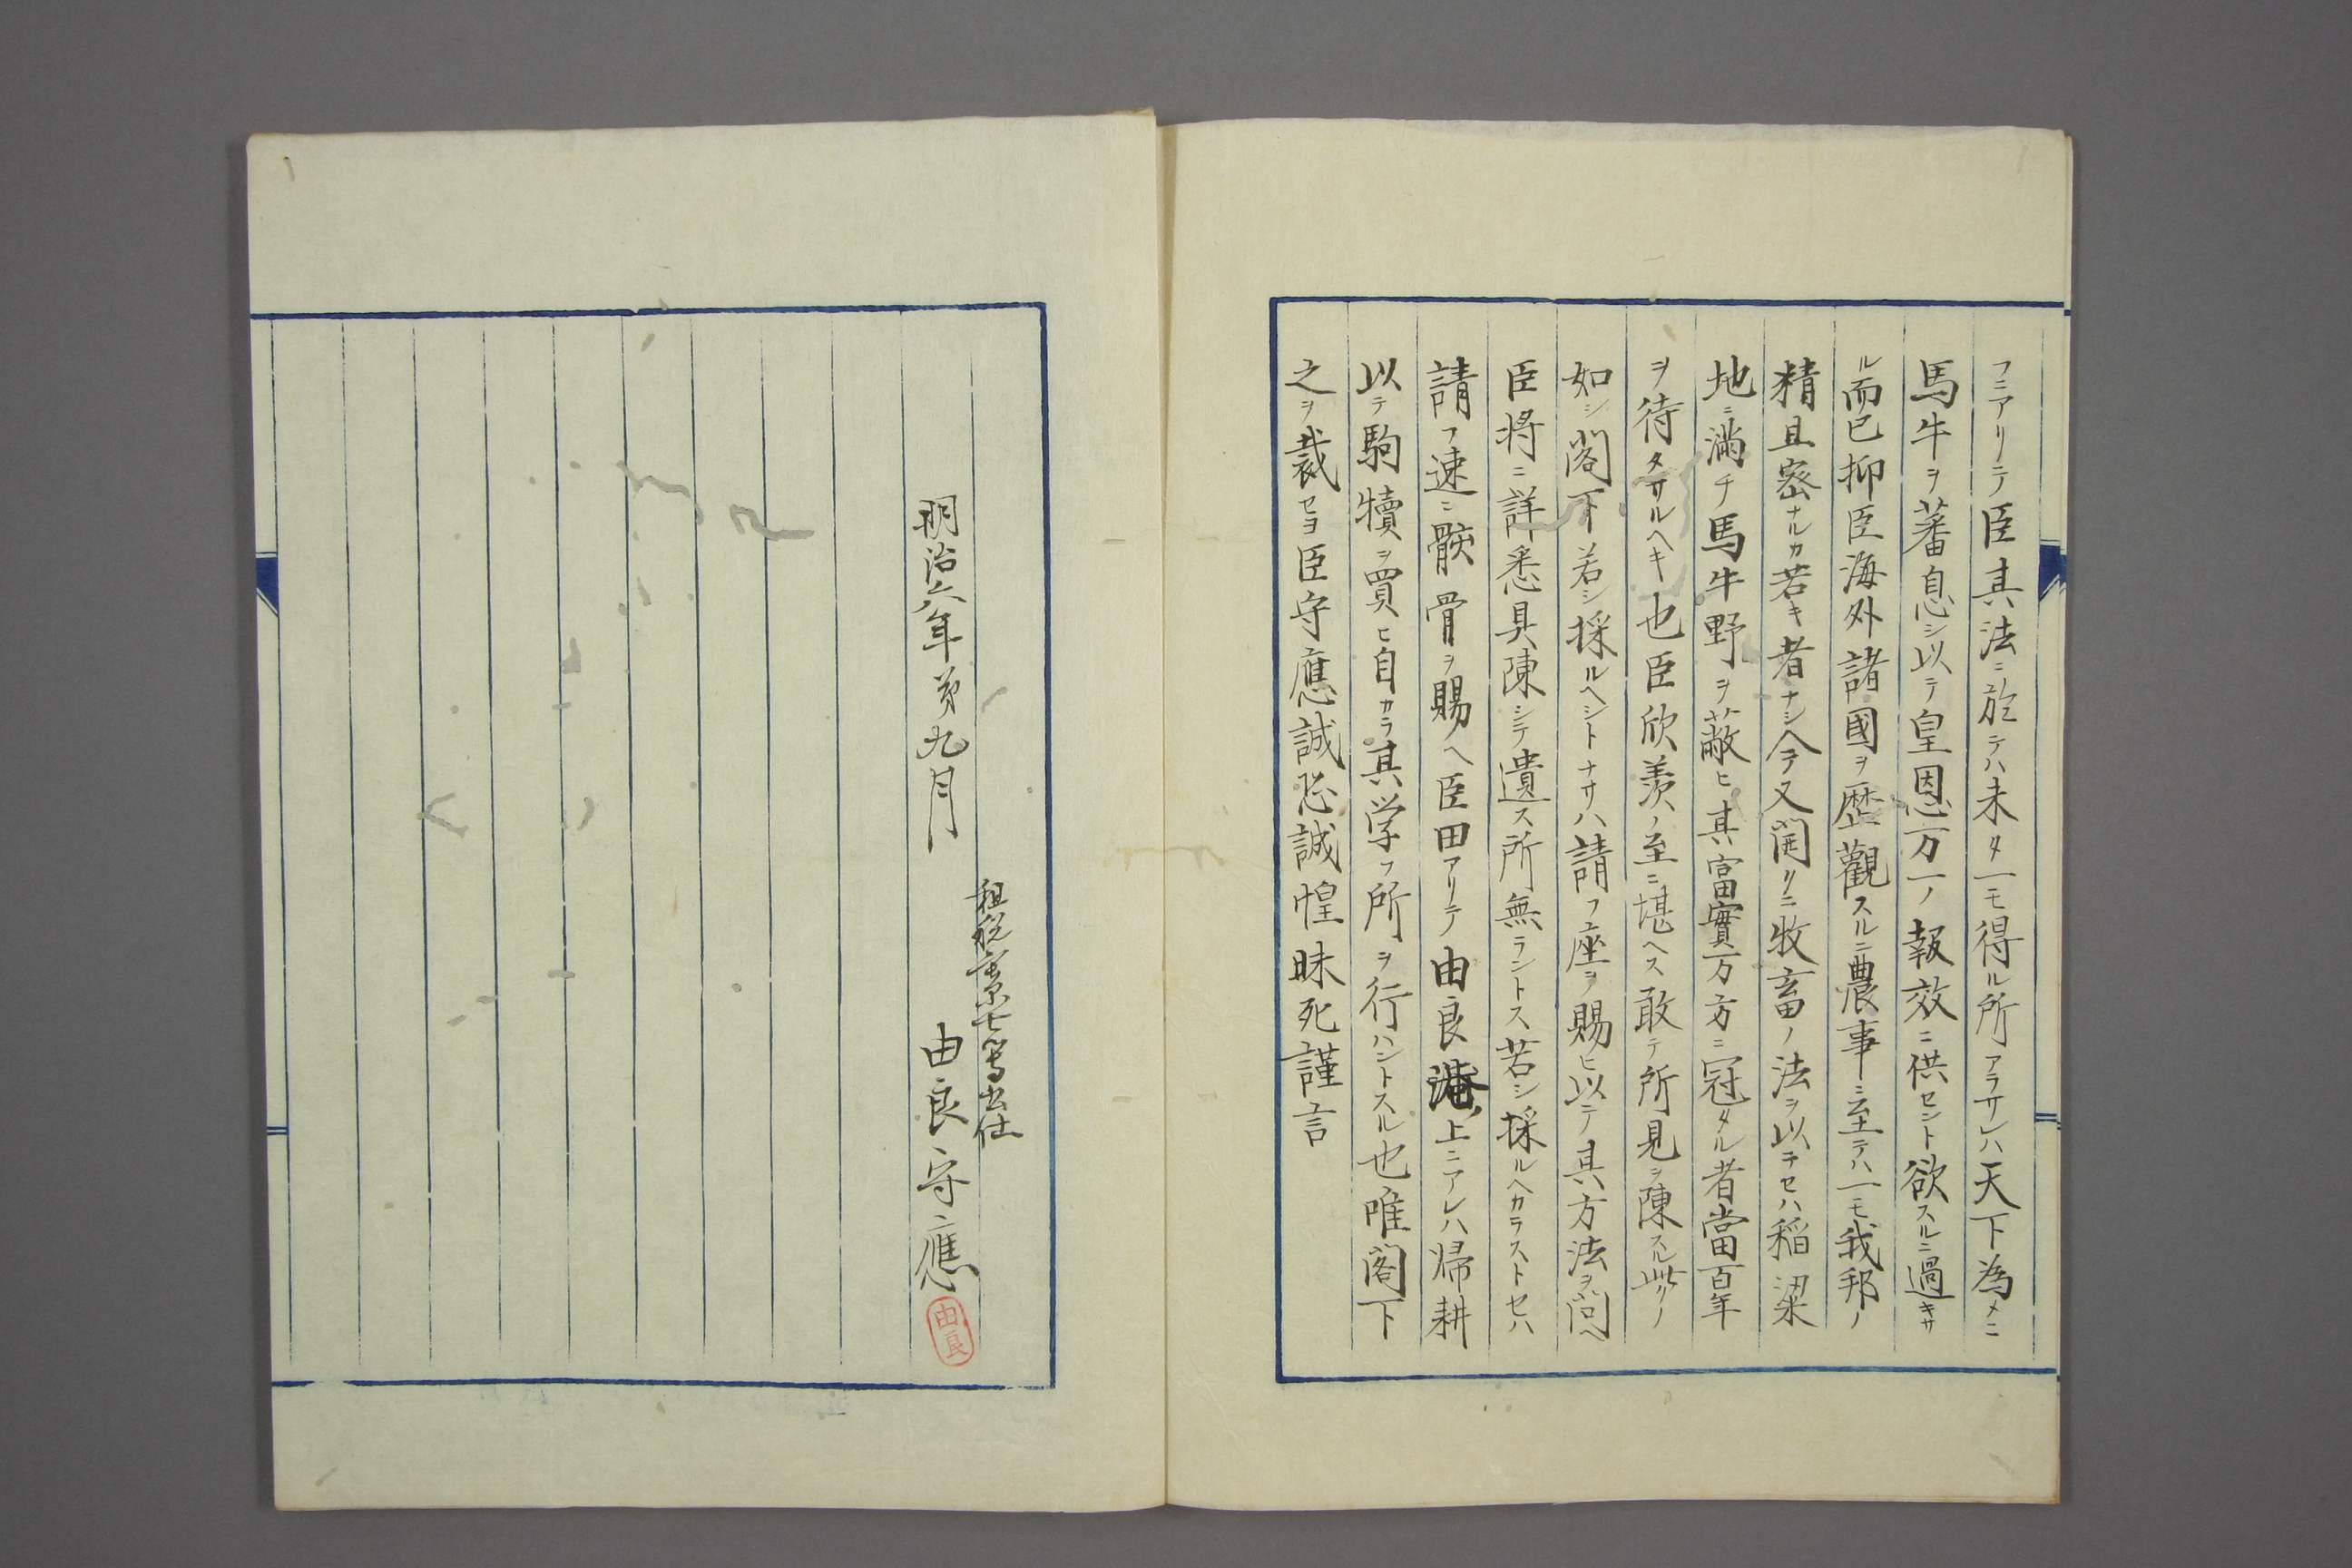 フニアリテ臣其法ニ於テハ未タ一モ得ル所アラサレハ天下為メニ
馬牛ヲ蕃息シ以テ皇恩万一ノ報效ニ供セント欲スルニ過キサ
ル而已抑臣海外諸國ヲ歴觀スルニ農事ニ至テハ一モ我邦ノ
精且密ナルカ若キ者ナシ今ヲ又開クニ牧畜ノ法ヲ以テセハ稲粱
地ニ満チ馬牛野ヲ蔽ヒ其富實万方ニ冠タル者當百年
ヲ待タサルヘキ也臣欣羨ノ至ニ堪ヘス敢テ所見ヲ陳スル此ノ
如シ閣下若シ採ルヘシトナサハ請フ座ヲ賜ヒ以テ其方法ヲ問ヘ
臣将ニ詳悉具陳シテ遺ス所無ラントス若シ採ルヘカラストセハ
請フ速ニ骸骨ヲ賜ヘ臣田アリテ由良港ノ上ニアレハ帰耕
以テ駒犢ヲ買ヒ自カラ其学フ所ヲ行ハントスル也唯閣下
之ヲ裁セヨ臣守應誠恐誠惶昧死謹言
明治六年第九月
租税寮七等出仕
由良守應
由良